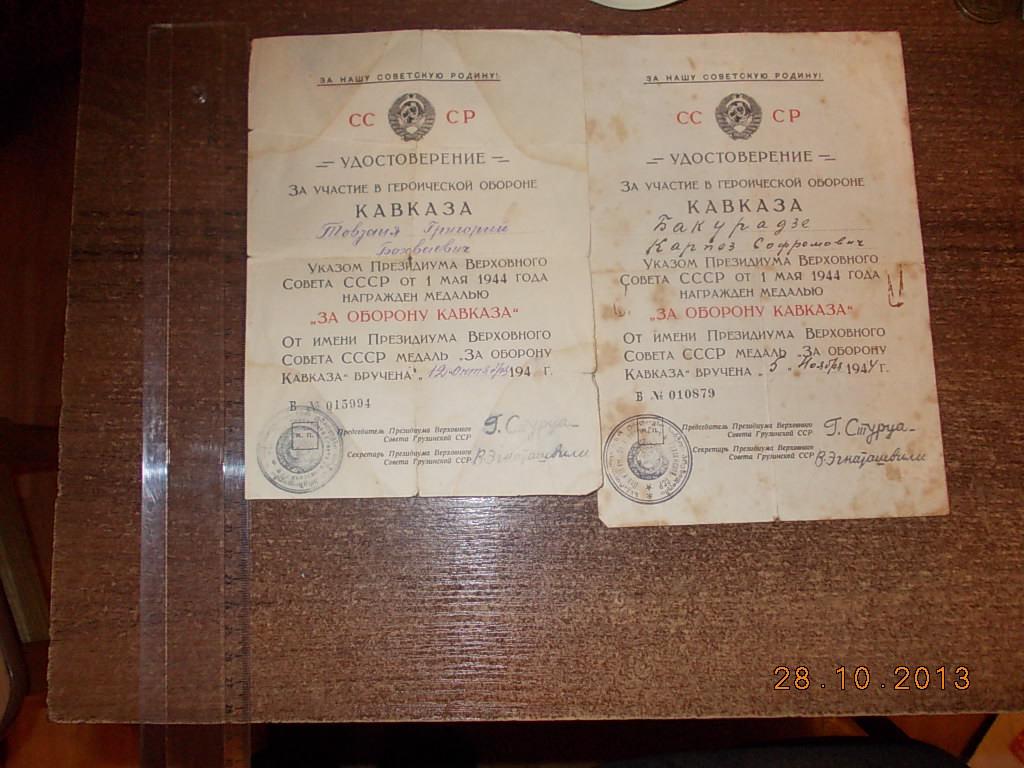 ЗА НАШУ СОВЕТСКУЮ РОДИНУ!
СС СР
УДОСТОВЕРЕНИЕ
ЗА УЧАСТИЕ В ГЕРОИЧЕСКОЙ ОБОРОНЕ
КАВКАЗА
Григорий
УКАЗОМ ПРЕЗИДИУМА ВЕРХОВНОГО
СОВЕТА СССР ОТ 1 МАЯ 1944 ГОДА
НАГРАЖДЕН МЕДАЛЬЮ
„ЗА ОБОРОНУ КАВКАЗА“
ОТ ИМЕНИ ПРЕЗИДИУМА ВЕРХОВНОГО
СОВЕТА СССР МЕДАЛЬ „ЗА ОБОРОНУ
КАВКАЗА“ ВРУЧЕНА „12 октября 194 г.
Б № 015994
М. П.
Председатель Президиума Верховного
Совета Грузинской ССР
Г. Стуруа
Секретарь Президиума Верховного
Совета Грузинской ССР
В. Эгнаташвили
ЗА НАШУ СОВЕТСКУЮ РОДИНУ!
СС СР
УДОСТОВЕРЕНИЕ
ЗА УЧАСТИЕ В ГЕРОИЧЕСКОЙ ОБОРОНЕ
КАВКАЗА
Бакурадзе
Карпез Софромович
УКАЗОМ ПРЕЗИДИУМА ВЕРХОВНОГО
СОВЕТА СССР ОТ 1 МАЯ 1944 ГОДА
НАГРАЖДЕН МЕДАЛЬЮ
„ЗА ОБОРОНУ КАВКАЗА“
ОТ ИМЕНИ ПРЕЗИДИУМА ВЕРХОВНОГО
СОВЕТА СССР МЕДАЛЬ „ЗА ОБОРОНУ
КАВКАЗА“ ВРУЧЕНА „5 Ноября 1944 г.
Б № 010879
М. П.
Председатель Президиума Верховного
Совета Грузинской ССР
Г. Стуруа
Секретарь Президиума Верховного
Совета Грузинской ССР
В. Эгнаташвили
28.10.2013